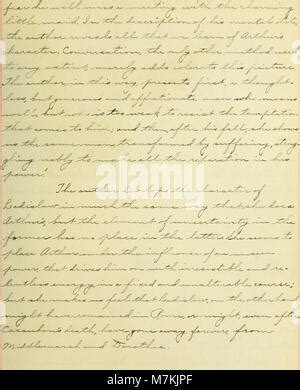 parade will mar a meeting with the charming
little maid. In the description of his mental state,
the author reveals all that is a harm of Arthur's
character. Conversation, the only other method used
to any extent, merely adds color to this picture.
The author in this way, presents first, a thought-
less, but generous and affectionate man who means
well, but who is too weak to resist the temptation
that comes to him; and then after his fall, she shows
us the same man transformed by suffering, strug-
gling nobly to make all the reparation in his
power.
The author develops the character of
Ladislaw in much the same way that she does
Arthur, but the element of uncertainty in the
former has no place in the latter. She seems to
place Arthur under the influence of an unseen
power, that drives him on with irresistible and re-
lentless energy in a fixed and unalterable course;
but she makes us feel that Ladislaw, on the other hand
might have remained in Rome, or might, even after
Casaubon's death, have gone away forever from
Middlemarch and Dorothea.
alamy
Image ID: M7KPJF
www.alamy.com